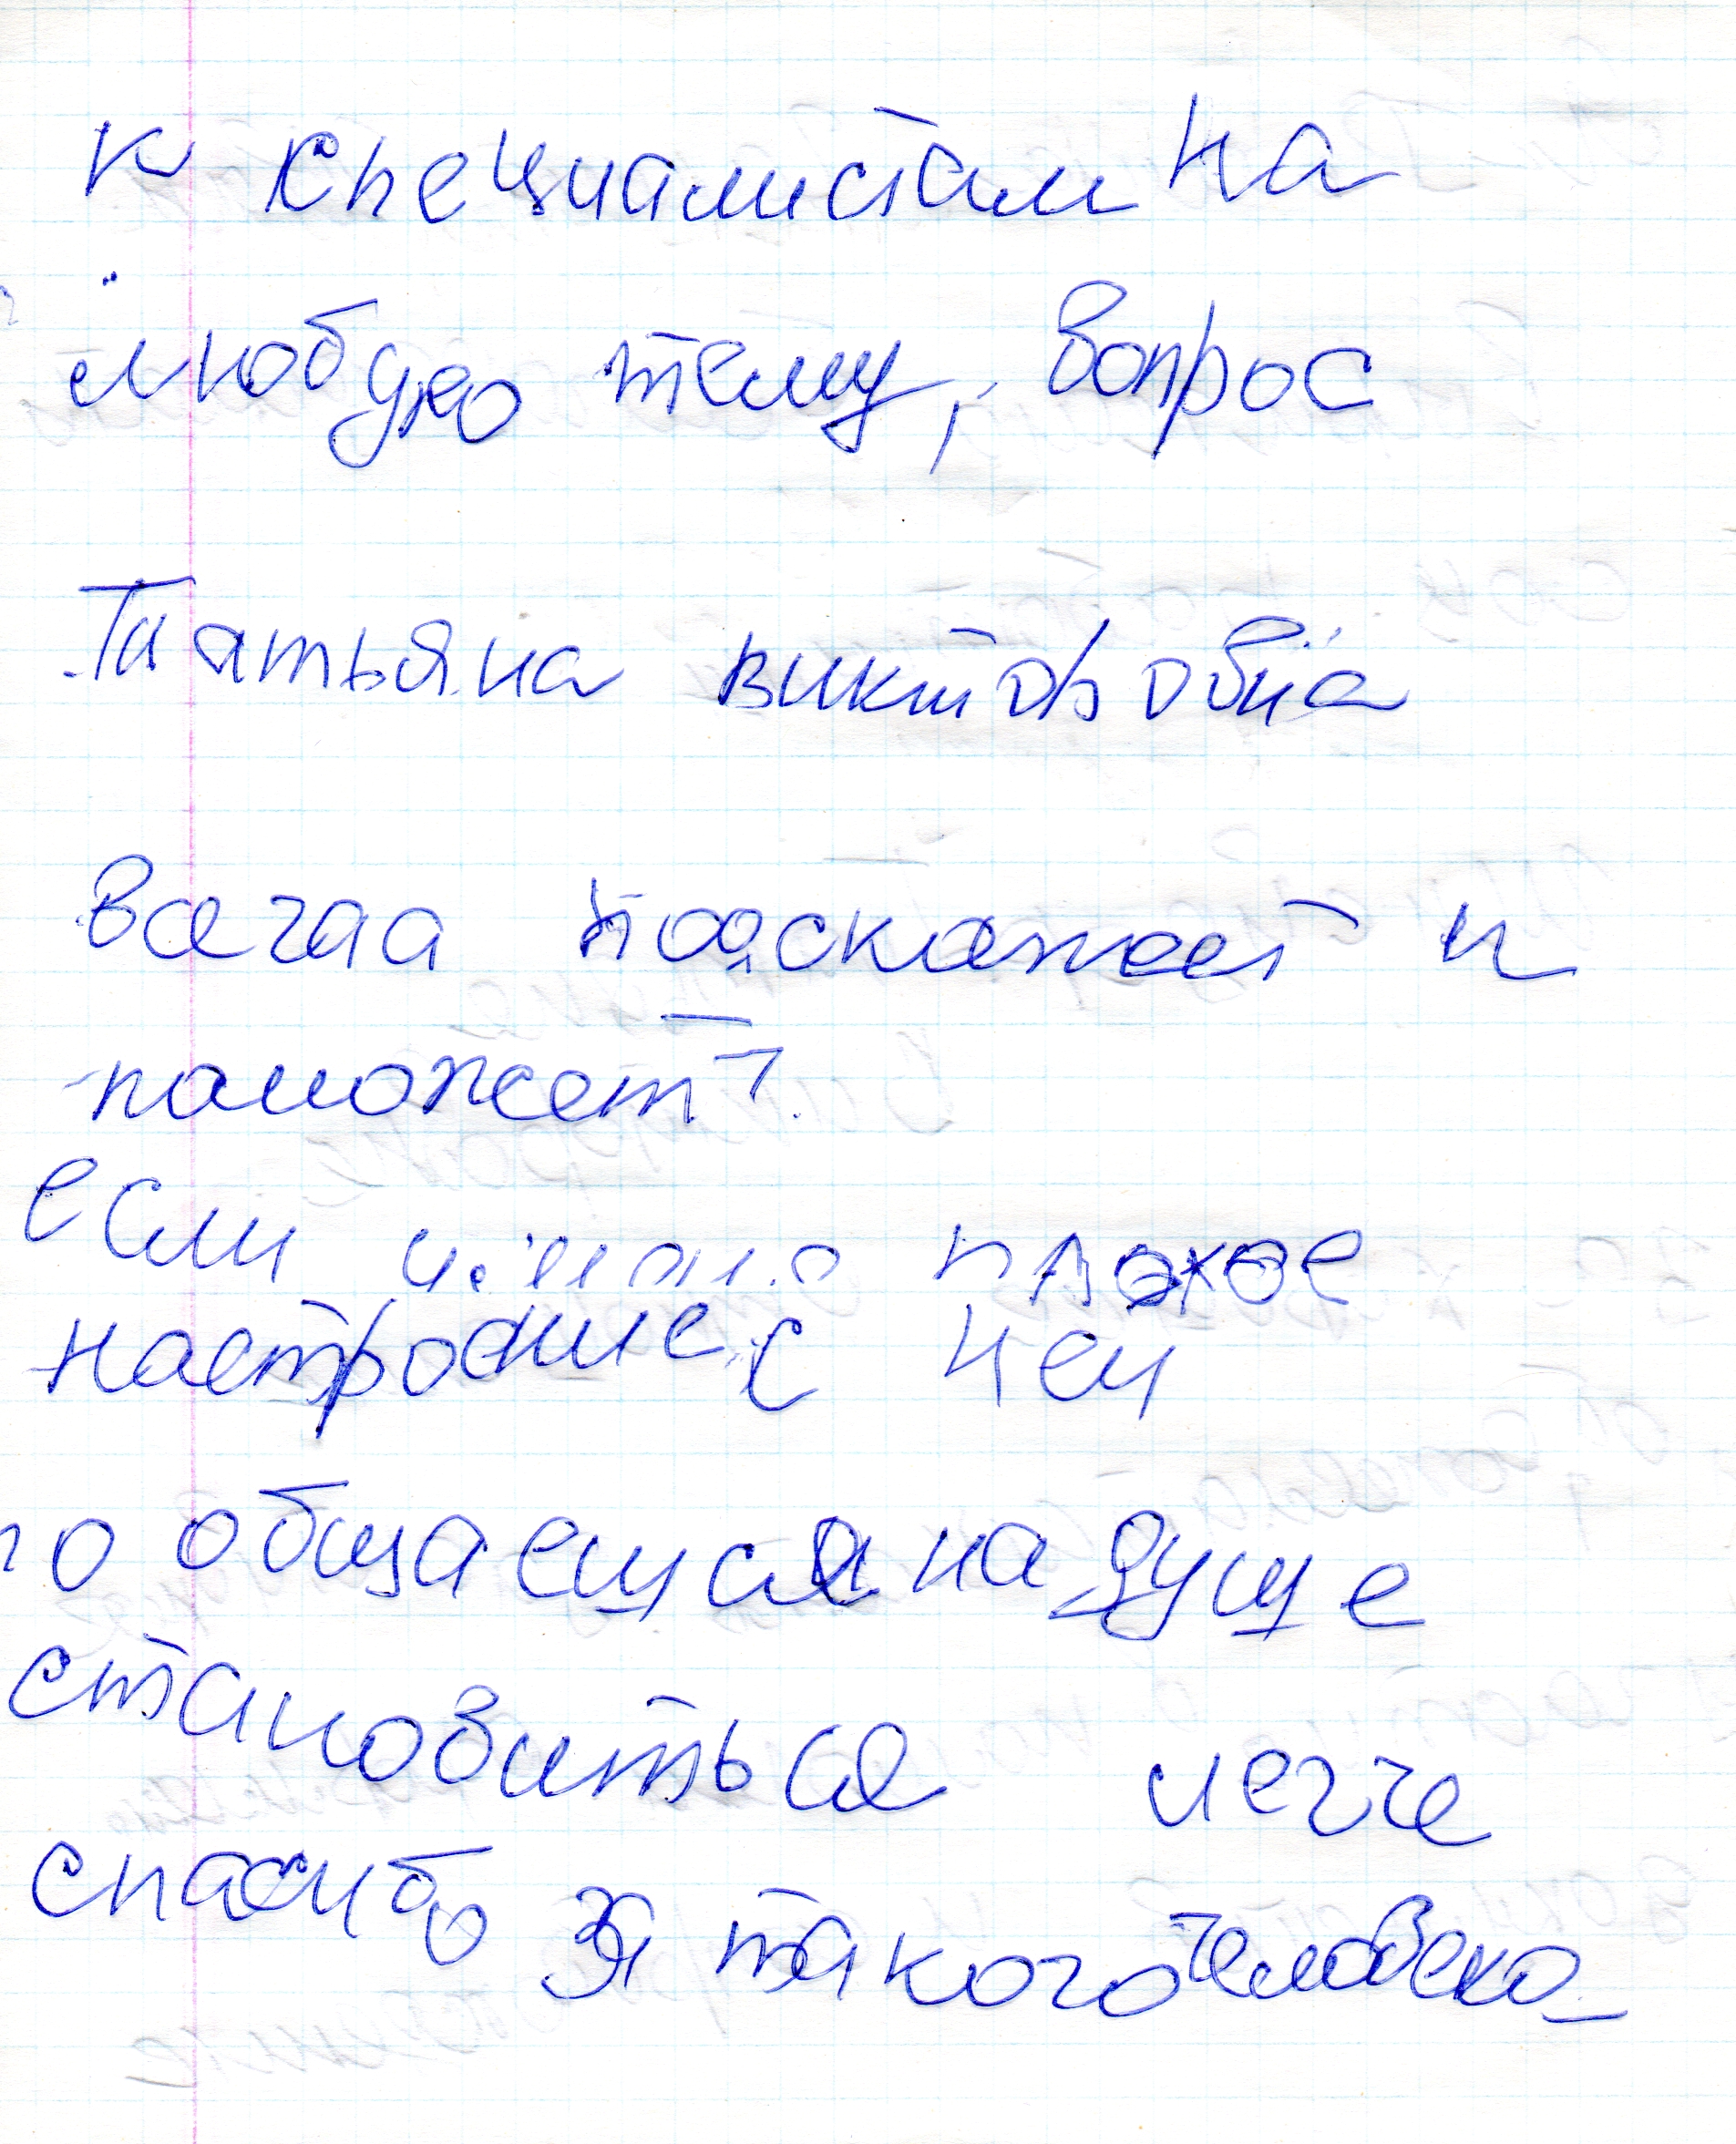 к специалистам на
любую тему, вопрос
Татьяна викторовна
Всегда подскажет и
поможет.
если плохое
настроение с ней
общаешся на душе
становиться легче
спасибо за такого человека